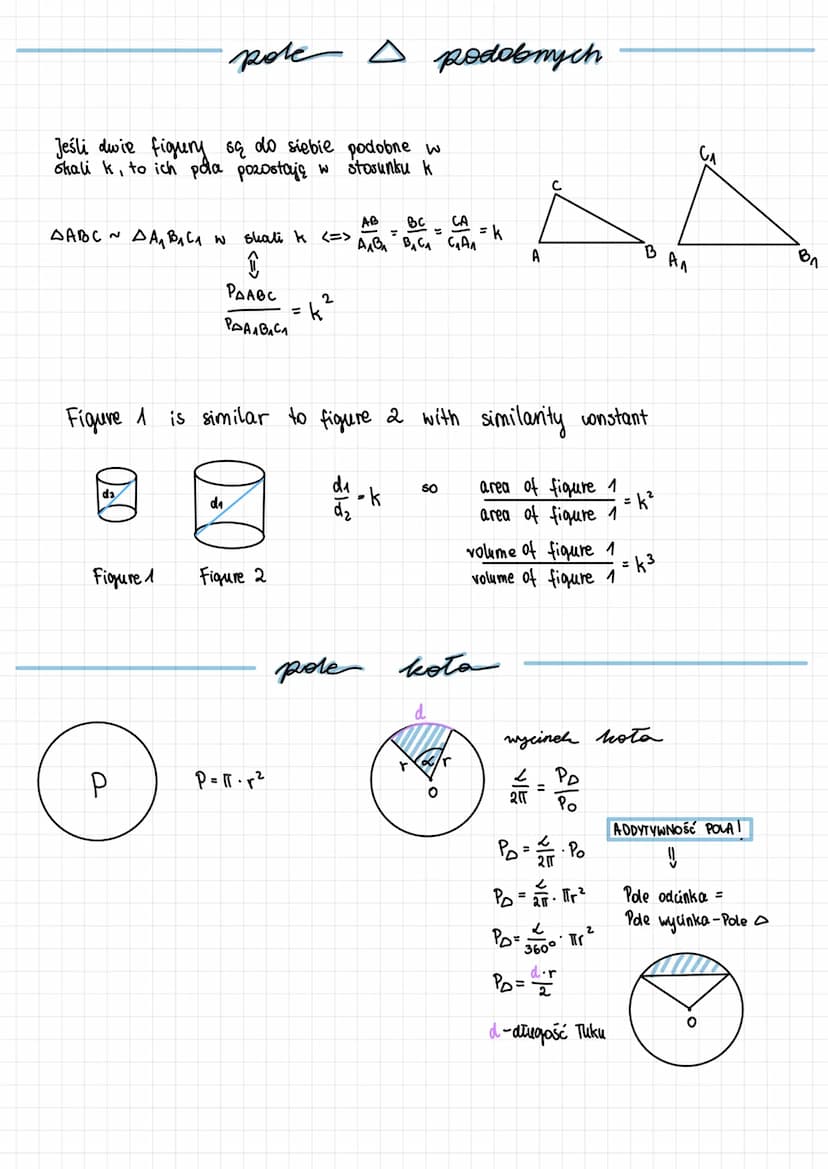 pole △ podobnych
Jeśli dwie figury są do siebie podobne w
skali k, to ich pola pozostają w stosunku k
△ABC ~ △A₁B₁C₁ w skali k <=> AB/A₁B₁ = BC/B₁C₁ = CA/C₁A₁ = k
⇕
P△ABC/P△A₁B₁C₁ = k²
C
A
B
C₁
A₁
B₁
Figure 1 is similar to figure 2 with similarity constant
d₂
d₁
d₁/d₂ = k so area of figure 1/area of figure 1 = k²
volume of figure 1/volume of figure 1 = k³
Figure 1 Figure 2
pole koła
P
P = π · r²
d
r α r
O
wycinek koła
α/2π = P▷/P○
P▷ = α/2π · P○
P▷ = α/2π · πr²
P▷ = α/360° · πr²
P▷ = d·r/2
d - długość łuku
ADDYTYWNOŚĆ POLA!
⇓
Pole odcinka =
Pole wycinka - Pole △
O